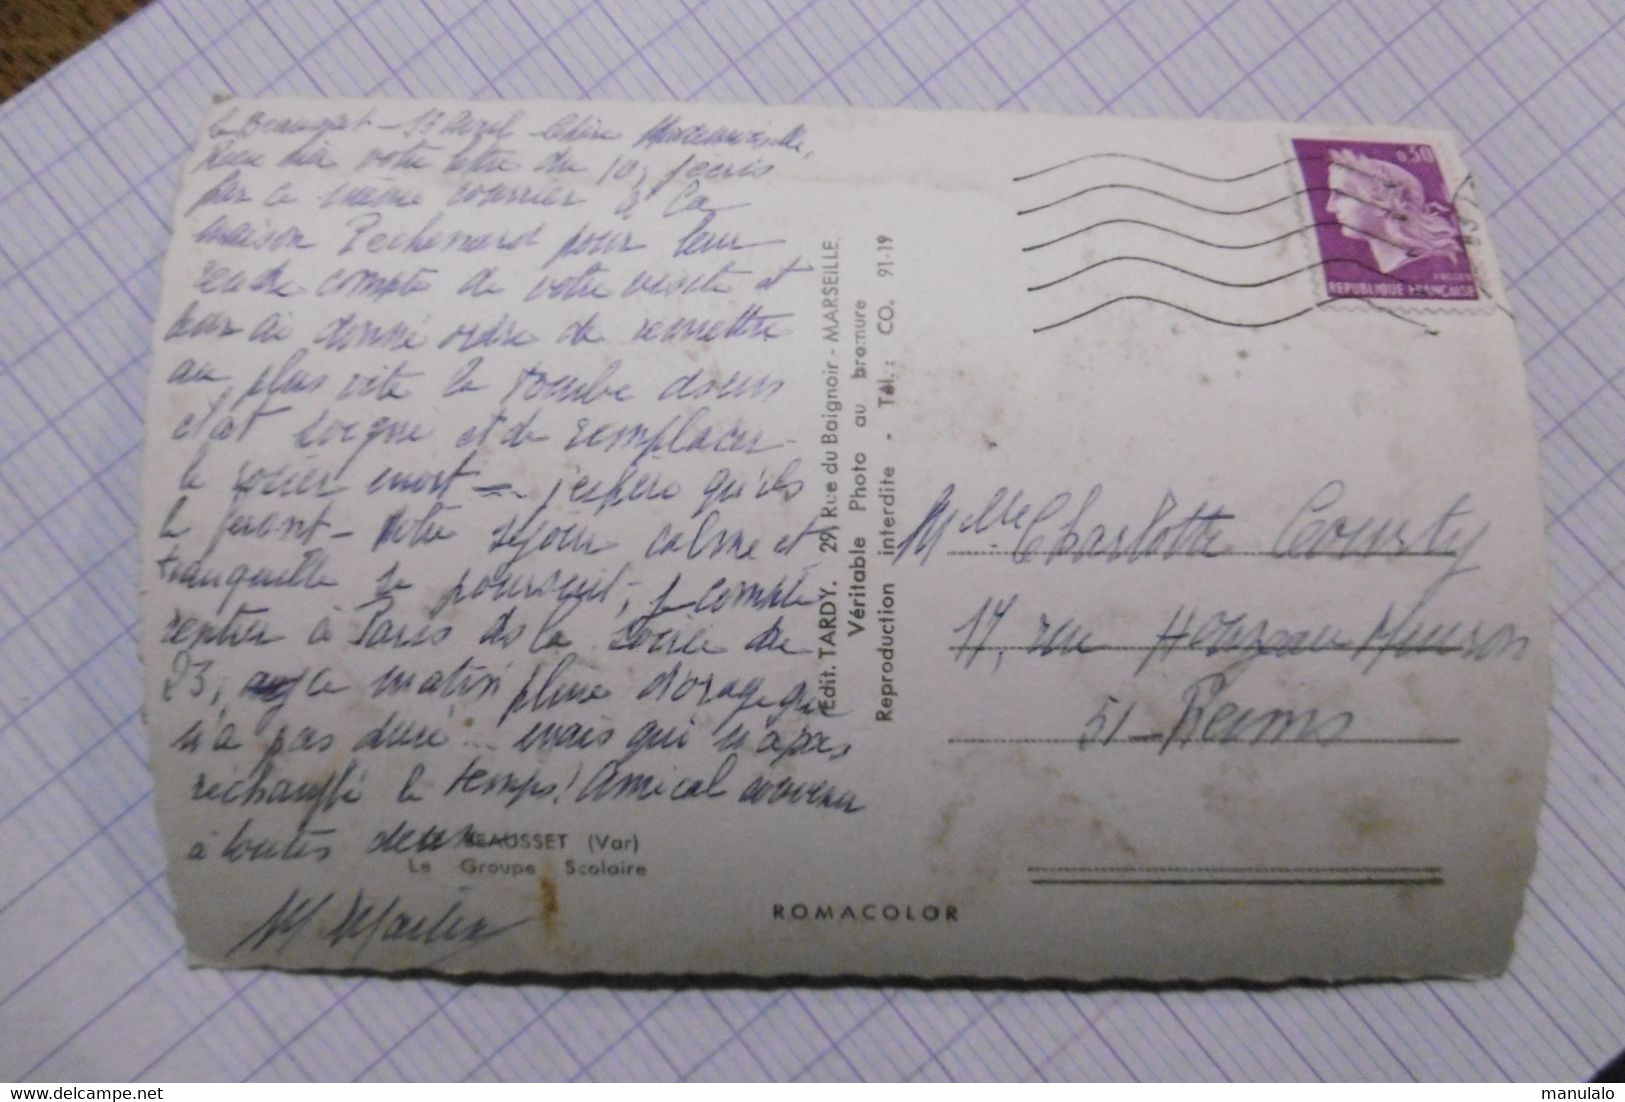 le Beausset - 13 Avril - Chère Mademoiselle,
Reçu hier votre lettre du 10, j'écris
par ce même courrier à la
maison Pechenard pour leur
rendre compte de votre visite et
leur ai donné ordre de remettre
au plus vite la tombe dans
état soigné et de remplacer
le rosier mort - j'espère qu'ils
le feront - Notre séjour calme et
tranquille se poursuit, je compte
rentrer à Paris ds la soirée du
23, ce matin pluie d'orage qui
n'a pas duré... mais qui n'a pas
réchauffé le temps! Amical souvenir
à toutes deux
M Martin
BEAUSSET (Var)
Le Groupe Scolaire
ROMACOLOR
Edit. TARDY. 29, Rue du Baignoir - MARSEILLE
Véritable Photo au bromure
Reproduction interdite - Tél.: CO. 91-19
0,30
REPUBLIQUE FRANÇAISE
Melle Charlotte Courty
17, rue Houzeau Muiron
51 - Reims
manulalo